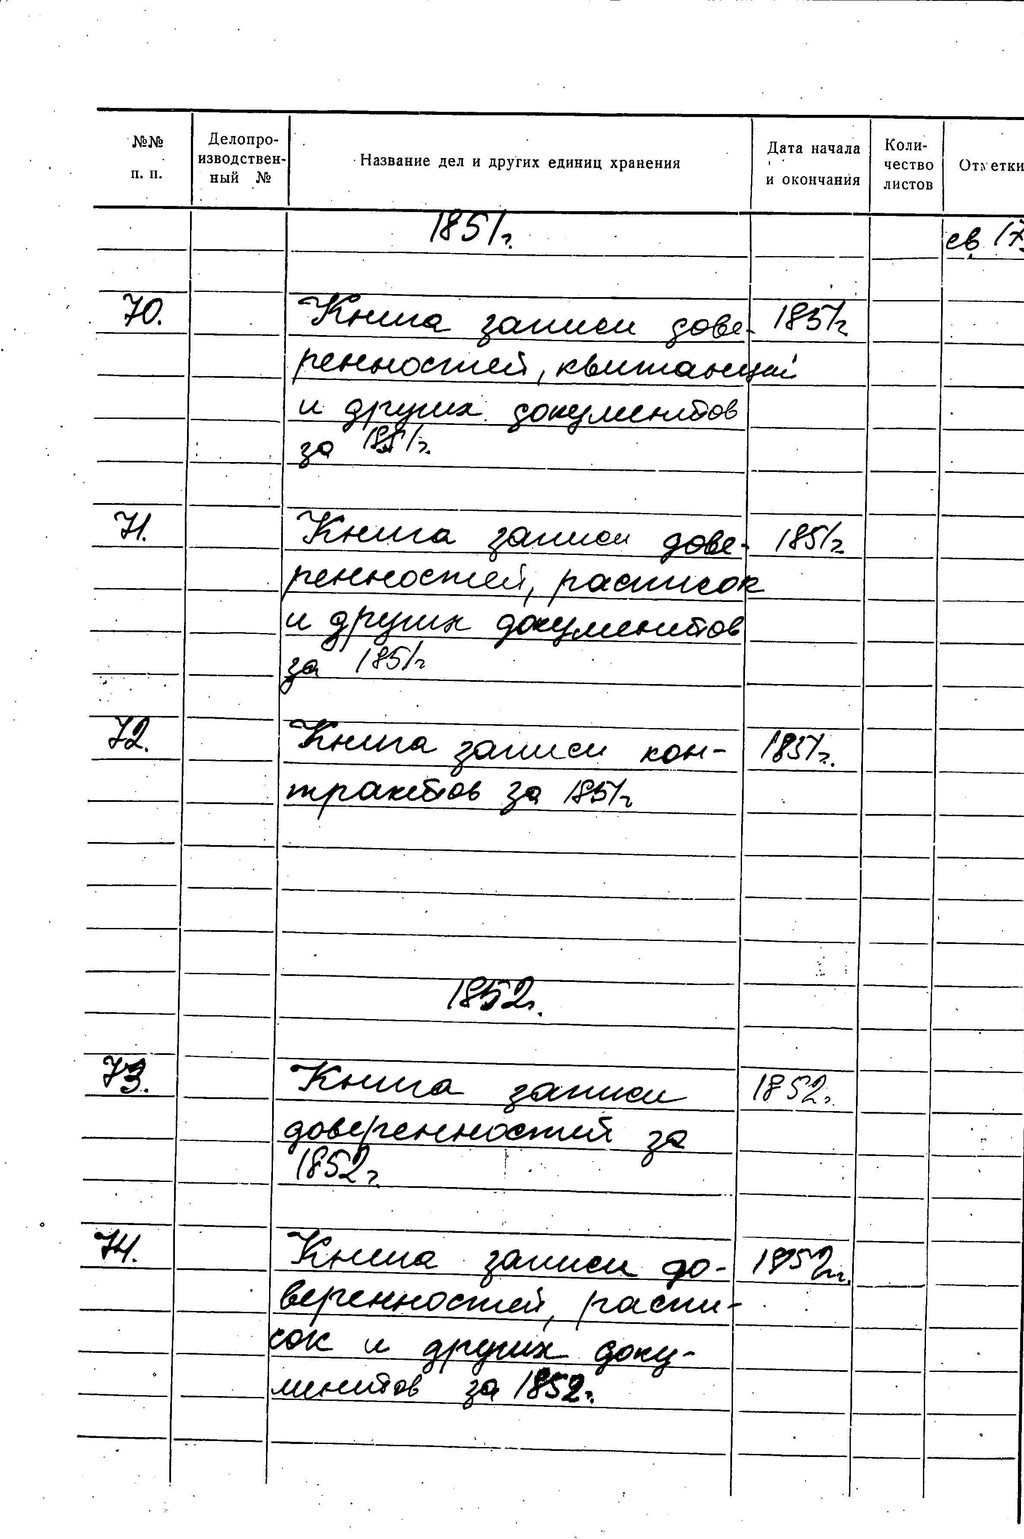 №№ п. п.
Делопро-
изводствен-
ный №
Название дел и других единиц хранения
Дата начала
и окончания
Коли-
чество
листов
Отметки
1851г.
св. 17
70.
Книга записи дове-
1851г
ренностей, квитанций
и других документов
за 1851г.
71.
Книга записи дове-
1851г
ренностей, расписок
и других документов
за 1851г
72.
Книга записи кон-
1851г.
трактов за 1851г
1852г.
73.
Книга записи
1852г.
доверенностей за
1852г.
74.
Книга записи до-
1852г.
веренностей, распи-
сок и других доку-
ментов за 1852г.